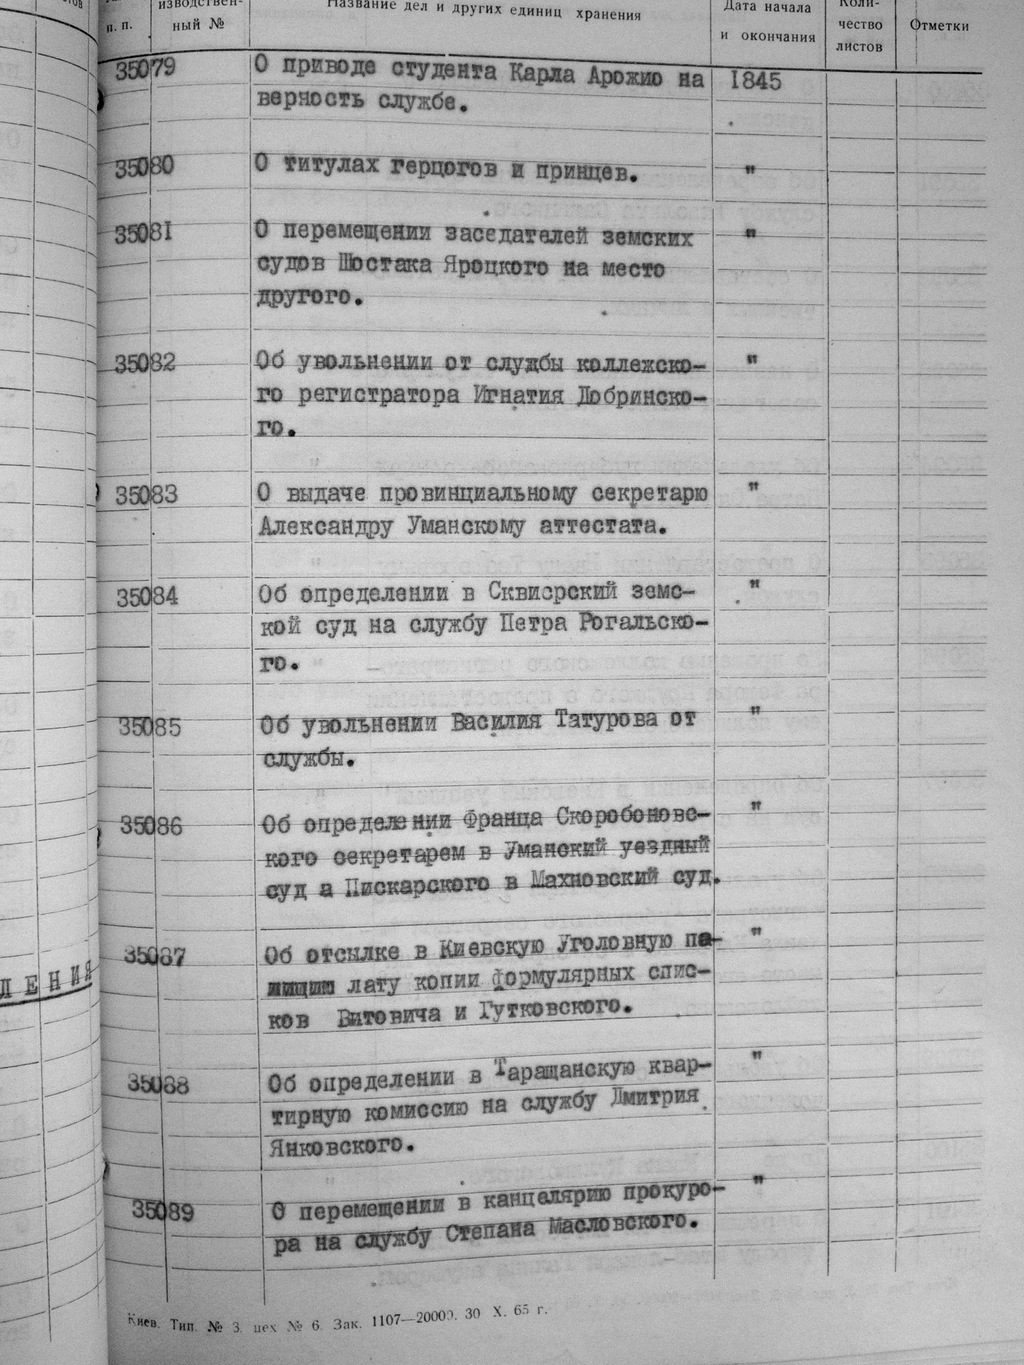 изводствен-
ный №
п. п.
Название дел и других единиц хранения
Дата начала
и окончания
Коли-
чество
листов
Отметки
35079 О приводе студента Карла Арожио на 1845
верность службе.
35080 О титулах герцогов и принцев. "
35081 О перемещении заседателей земских "
судов Шостака Яроцкого на место
другого.
35082 Об увольнении от службы коллежско- "
го регистратора Игнатия Добринско-
го.
35083 О выдаче провинциальному секретарю "
Александру Уманскому аттестата.
35084 Об определении в Сквирский земс- "
кой суд на службу Петра Рогальско-
го.
35085 Об увольнении Василия Татурова от "
службы.
35086 Об определении Франца Скоробоновс- "
кого секретарем в Уманский уездный
суд а Пискарского в Махновский суд.
35087 Об отсылке в Киевскую Уголовную па- "
лату копии формулярных спис-
ков Витовича и Гутковского.
35088 Об определении в Таращанскую квар- "
тирную комиссию на службу Дмитрия
Янковского.
35089 О перемещении в канцелярию прокуро- "
ра на службу Степана Масловского.
ЛЕНИЯ
Киев. Тип. № 3. цех № 6. Зак. 1107—20000. 30 X. 65 г.